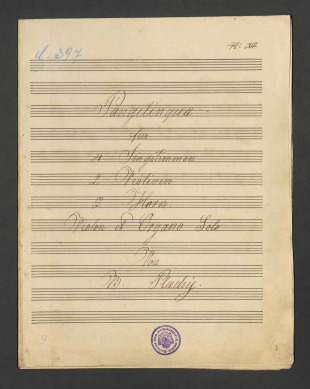 d. 397
Pangelingua
für
4 Singstimmen
2 Violinen
2 Horn
Violon & Organo Solo
Von
W. Plachý.
1